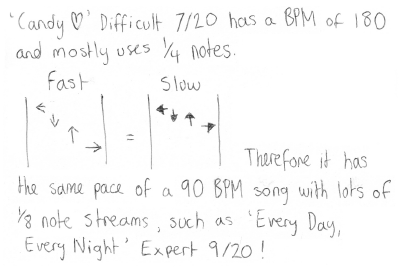 'Candy ♡' Difficult 7/20 has a BPM of 180
and mostly uses 1/4 notes.
Fast Slow
=
Therefore it has
the same pace of a 90 BPM song with lots of
1/8 note streams, such as 'Every Day,
Every Night' Expert 9/20!